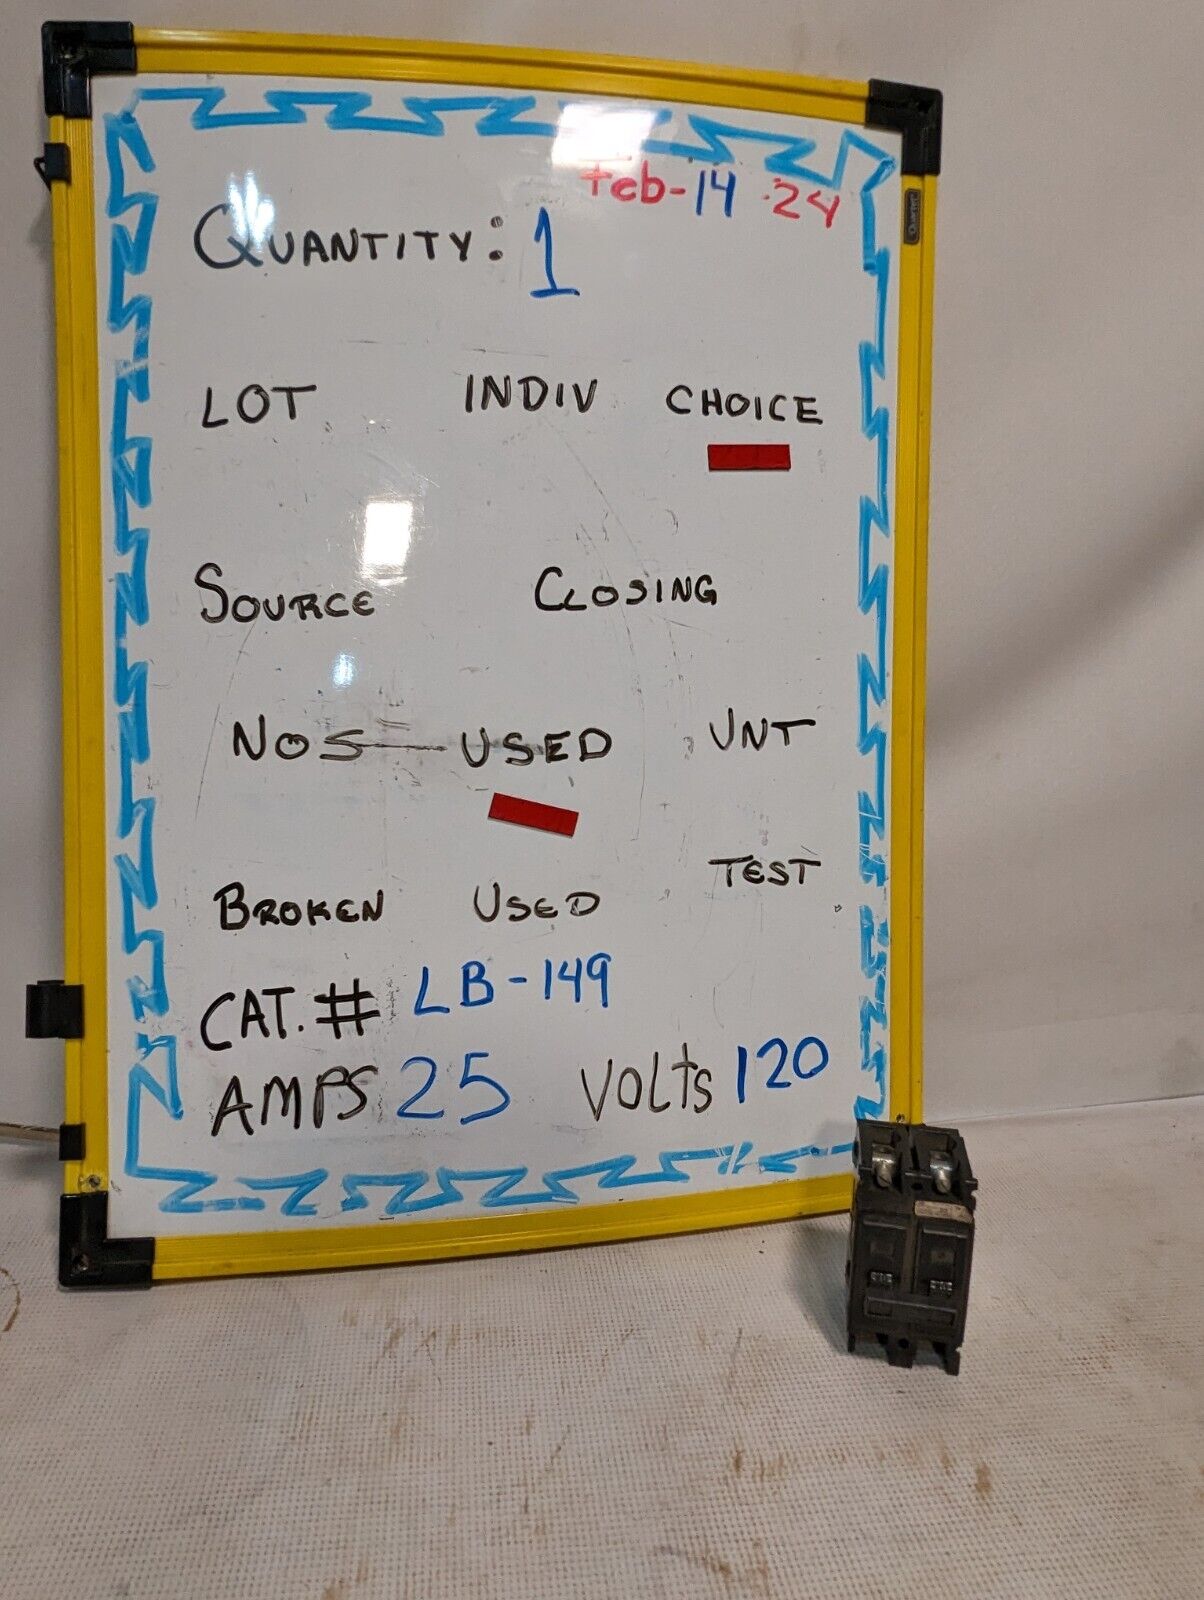 Feb-14 24
QUANTITY: 1
LOT INDIV CHOICE
SOURCE CLOSING
NOS USED UNT
TEST
BROKEN USED
CAT. # LB-149
AMPS 25 VOLTS 120
Quartet